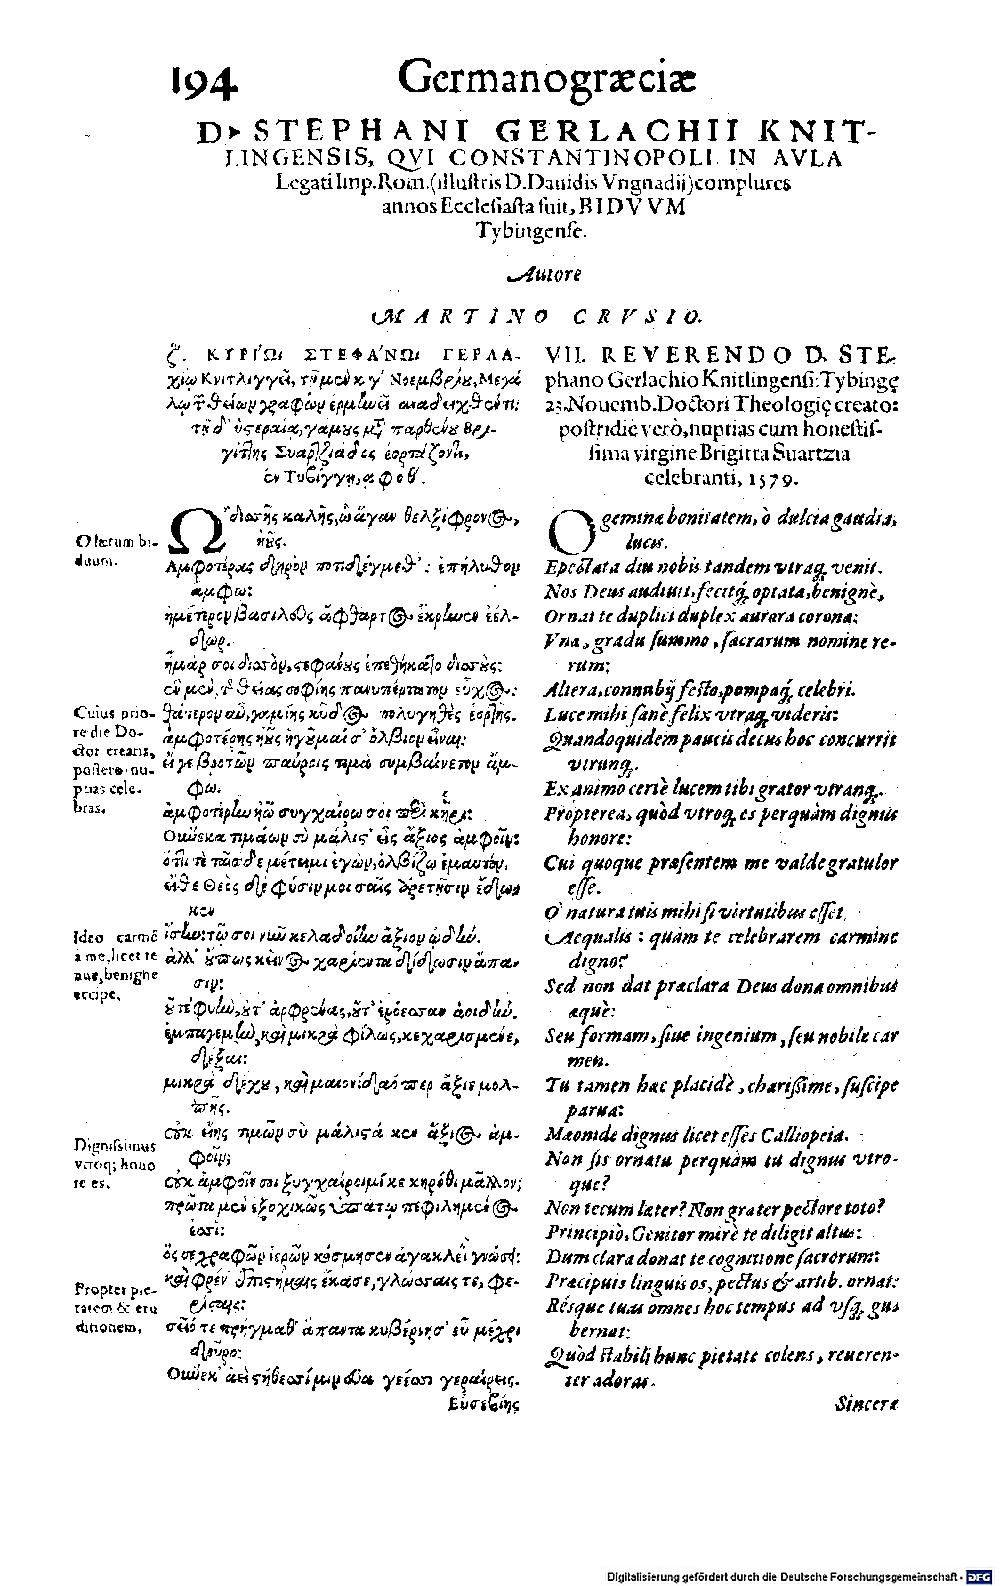 194 Germanogræciæ
D. STEPHANI GERLACHII KNIT-
LINGENSIS, QVI CONSTANTINOPOLI IN AVLA
Legati Imp. Rom. (illustris D. Dauidis Vngnadij) complures
annos Ecclesiasta fuit, BIDVVM
Tybingense.
Autore
MARTINO CRVSIO.
ζ. ΚΥΡΊΩι ΣΤΕΦΆΝΩι ΓΕΡΛΑ-
χίῳ Κνιτλιγγεῖ, τῇ μὲν κγ´ Νοεμβρίου, Μεγά
λῳ τῶν θείων γραφῶν ἑρμηνεῖ ἀναδειχθέντι:
τῇ δ' ὑστεραίᾳ, γάμους μετὰ παρθένου Βρι-
γίτης Συαρτζιάδος ἑορτάζοντι,
ἐν Τυβίγγῃ, αφοθ´.
VII. REVERENDO D. STE-
phano Gerlachio Knitlingensi: Tybingę
23. Nouemb. Doctori Theologię creato:
postridie verò, nuptias cum honestis-
sima virgine Brigitta Suartzia
celebranti, 1579.
O lætum bi-
duum.
Cuius prio-
re die Do-
ctor creans,
postero nu-
ptias cele-
bras.
Ideo carmē
à me, licet te
nue, benigne
accipe.
Dignissimus
vtroq; hono
re es.
Propter pie-
tatem & eru
ditionem.
Ὦ δισσῆς καλῆς, ὢ ἄγαν θελξίφρονος,
ἠοῦς.
Ἀμφοτέρας δηρὸν ποτιδέγμεθ': ἐπήλυθον
ἄμφω:
ἡμέτερον βασιλεὺς ἄφθαρτος ἔκρηνεν ἐέλ-
δωρ.
ἦμάρ σοι δισσὸν, στεφάνους ἐπεθήκατο δισσούς:
ἓν μὲν, τῆς θείας σοφίης πανυπέρτατον εὖχος:
θάτερον αὖ, γαμίης κῦδος πολυγηθὲς ἑορτῆς.
ἀμφοτέρης ἠοῦς ἡγοῦμαί σ' ὄλβιον εἶναι:
εἴ γε βροτῶν παύροις τιμὰ συμβαίνετον ἄμ-
φω.
ἀμφοτέρην ἠῶ συγχαίρω σοι περὶ κῆρι:
Οὕνεκα τιμάων σὺ μάλιστ' εἶς ἄξιος ἀμφοῖν:
ὅττι τε τᾶσδε μέτειμι ἐγὼν, ὀλβίζω ἐμαυτόν.
εἴθε Θεὸς δὲ φύσιν μοι σαῖς ἀρετῇσιν ἔδωκεν
ἴσην: τῶ σοι νῦν κελαδοίην ἄξιον ᾠδήν.
ἀλλ' οὔπως κεῖνος χαρίεντα δίδωσιν ἅπα-
σιν:
οὔτε φυὴν, οὔτ' ἂρ φρένας, οὔτ' ἐρόεσσαν ἀοιδήν.
ἔμπαγε μὴν, καὶ μικρὰ φίλως, κεχαρισμένε,
δέξαι:
μικρὰ δέχου, καὶ μαιονίδαό περ ἄξιε μολ-
πῆς.
οὐκ εἴης τιμῶν σὺ μάλιστά κεν ἄξιος ἀμ-
φοῖν;
οὐκ ἀμφοῖν σοι ξυγχαίροιμί κε κηρόθι μᾶλλον;
πρῶτα μὲν ἐξοχικῶς ὑπάτῳ πεφιλημένος
ἐσσί:
ὅς σε γραφῶν ἱερῶν κόσμησεν ἀγακλεῖ γνώσει:
καὶ φρέν' ἐπιστήμαις ἤκασε, γλώσσαις τε, φε-
ρίσταις:
σεῖό τε πρήγμαθ' ἅπαντα κυβέρνησ' εὖ μέχρι
δεῦρο:
Οὕνεκ' ἀεὶ
γεραίρεις.
Εὐσεβίης
O geminæ bonitatem, ô dulcia gaudia,
lucis.
Expectata diu nobis tandem vtraq; venit.
Nos Deus audiuit, fecitq́; optata, benignè,
Ornat te duplici duplex aurora corona:
Vna, gradu summo, sacrarum nomine re-
rum:
Altera, connubij festo, pompaq́; celebri.
Luce mihi sanè felix vtraq; videris:
Quandoquidem paucis decus hoc concurrit
vtrunq;.
Ex animo certè lucem tibi grator vtranq;.
Propterea, quòd vtroq; es perquàm dignus
honore:
Cui quoque præsentem me valde gratulor
esse.
O natura tuis mihi si virtutibus esset
Aequalis: quàm te celebrarem carmine
digno?
Sed non dat præclara Deus dona omnibus
æquè:
Seu formam, siue ingenium, seu nobile car
men.
Tu tamen hæc placidè, charissime, suscipe
parua:
Mæonidæ dignus licet esses Calliopeia.
Non sis ornatu perquàm tu dignus vtro-
que?
Non tecum læter? Non grater pectore toto?
Principiò, Genitor mirè te diligit altus:
Dum clara donat te cognitione sacrorum:
Præcipuis linguis os, pectus & artib. ornat:
Résque tuas omnes hoc tempus ad vsq; gu-
bernat:
Quòd stabili hunc pietate colens, reueren-
ter adoras.
Sinceræ
Digitalisierung gefördert durch die Deutsche Forschungsgemeinschaft - DFG